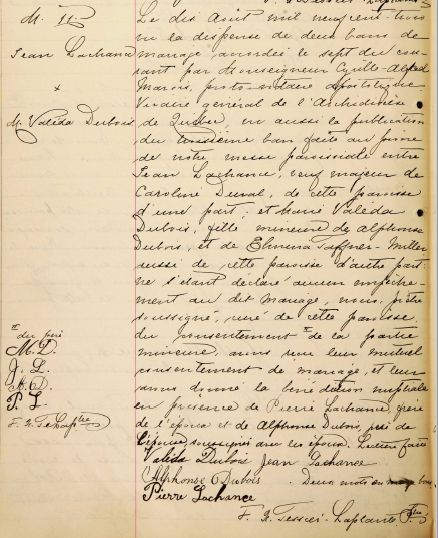 M. 11.
Jean Lachance
+
M. Valéda Dubois
Le dix Août mil neuf cent trois
vu la dispense de deux bans de
mariage, accordée le sept du cou-
rant par Monseigneur Cyrille-Alfred
Marois, protonotaire Apostolique
Vicaire général de l'Archidiocèse
de Québec, vu aussi la publication
du troisième ban faite au prône
de notre messe paroissiale entre
Jean Lachance, veuf majeur de
Caroline Duval, de cette paroisse
d'une part; et Marie Valéda
Dubois, fille mineure de Alphonse
Dubois, et de Elmina Miller
aussi de cette paroisse d'autre part:
ne s'étant déclaré aucun empêche-
ment au dit mariage, nous, prêtre
soussigné, curé de cette paroisse
du consentement de la partie
mineure, avons reçu leur mutuel
consentement de mariage, et leur
avons donné la bénédiction nuptiale
en présence de Pierre Lachance, frère
de l'époux et de Alphonse Dubois, père de
l'épouse, soussignés avec les époux. Lecture faite
Valéda Dubois Jean Lachance
Alphonse Dubois Deux mots en marge bons.
Pierre Lachance
F. X. Tessier-Laplante, Ptre
du père
M. D.
J. L.
A. D.
P. L.